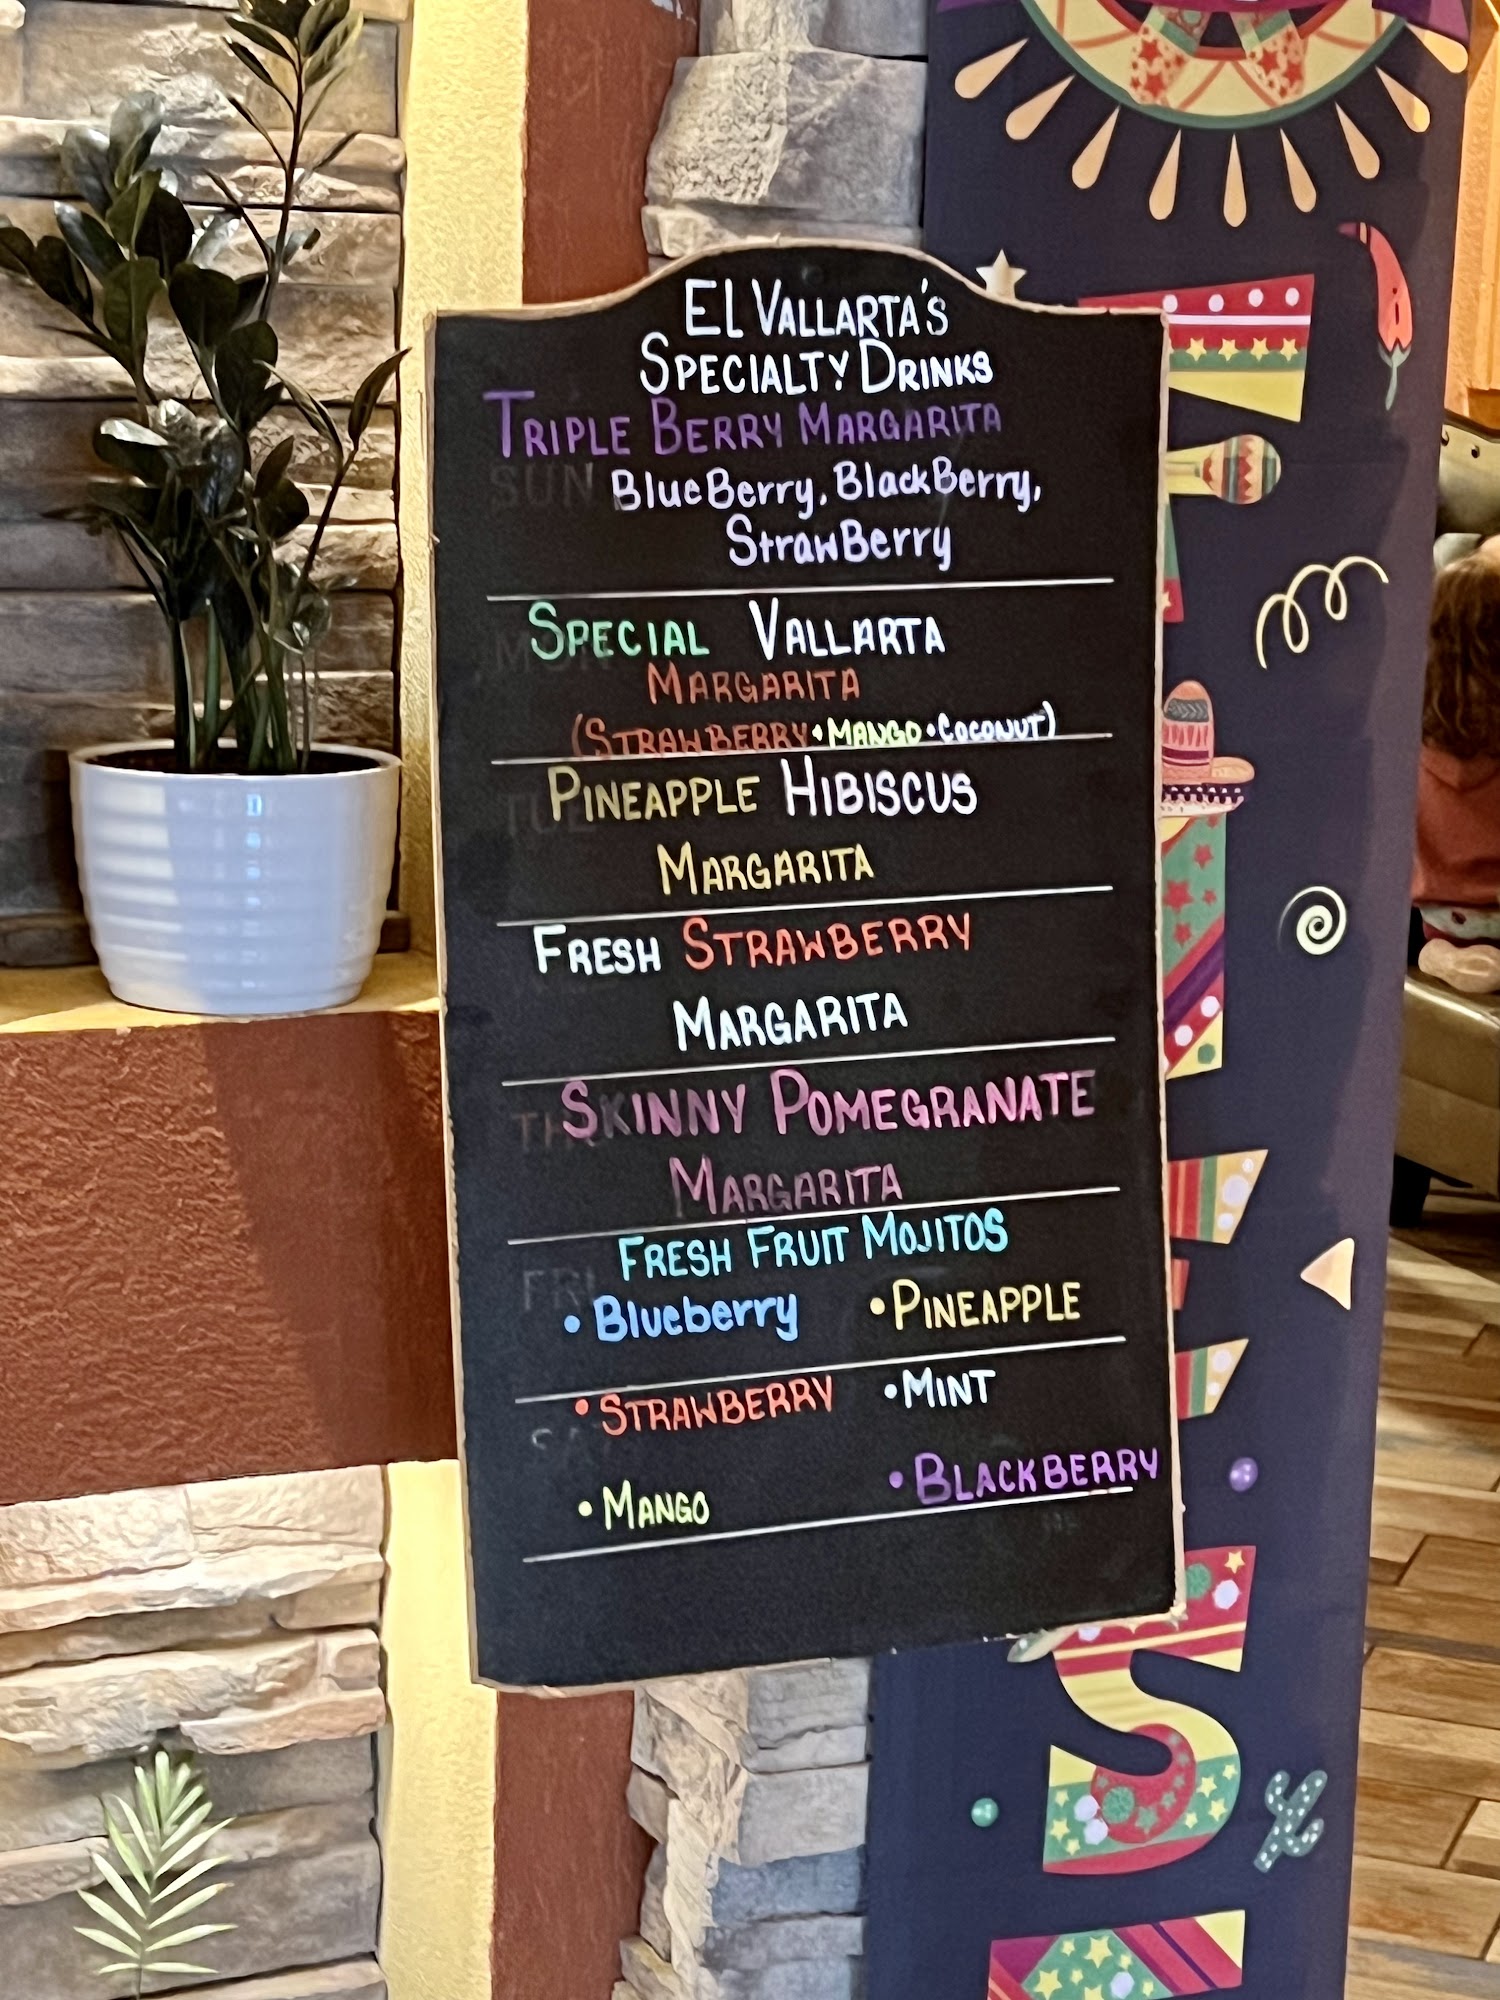 El Vallarta's
Specialty Drinks
Triple Berry Margarita
SUN
BlueBerry, BlackBerry,
StrawBerry
Special Vallarta
MON
Margarita
(Strawberry • Mango • Coconut)
Pineapple Hibiscus
TUE
Margarita
Fresh Strawberry
Margarita
Skinny Pomegranate
Margarita
Fresh Fruit Mojitos
FRI
• Blueberry • Pineapple
• Strawberry • Mint
SAT
• Mango • Blackberry